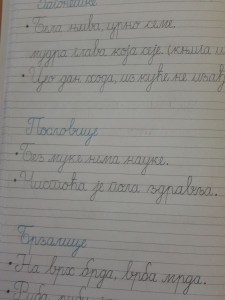 Загонетке
• Бела њива, црно семе,
мудра глава која сеје (књига и
• Цео дан хода, из куће не изађ
Пословице
• Без муке нема науке.
• Чистоћа је пола здравља.
Брзалице
• На врх брда, врба мрда.
• Риба риби